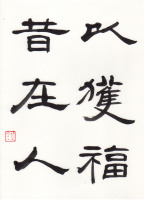 以獲福
昔在人